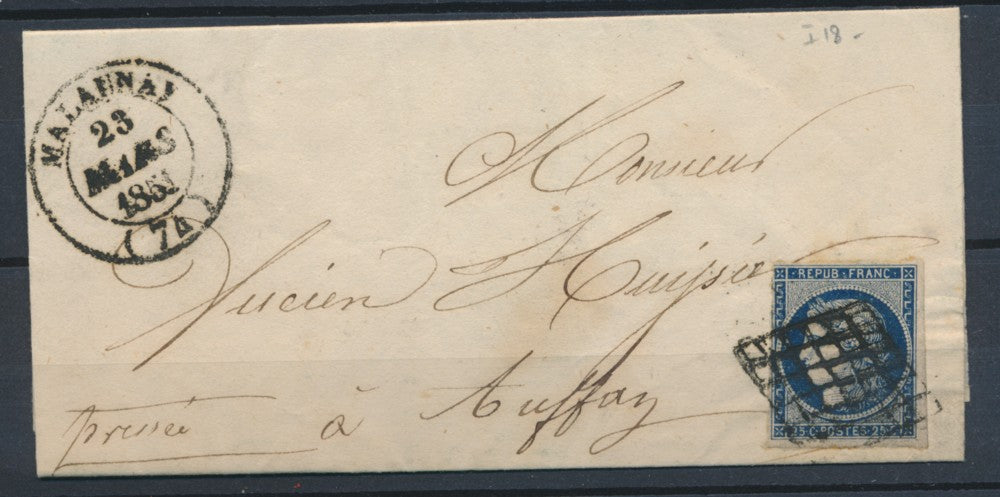 I 18 -
MALAUNAY
23
MARS
1851
(74)
Monsieur
Lucien
pressée à Auffay
REPUB·FRANC·
25 C·POSTES·25